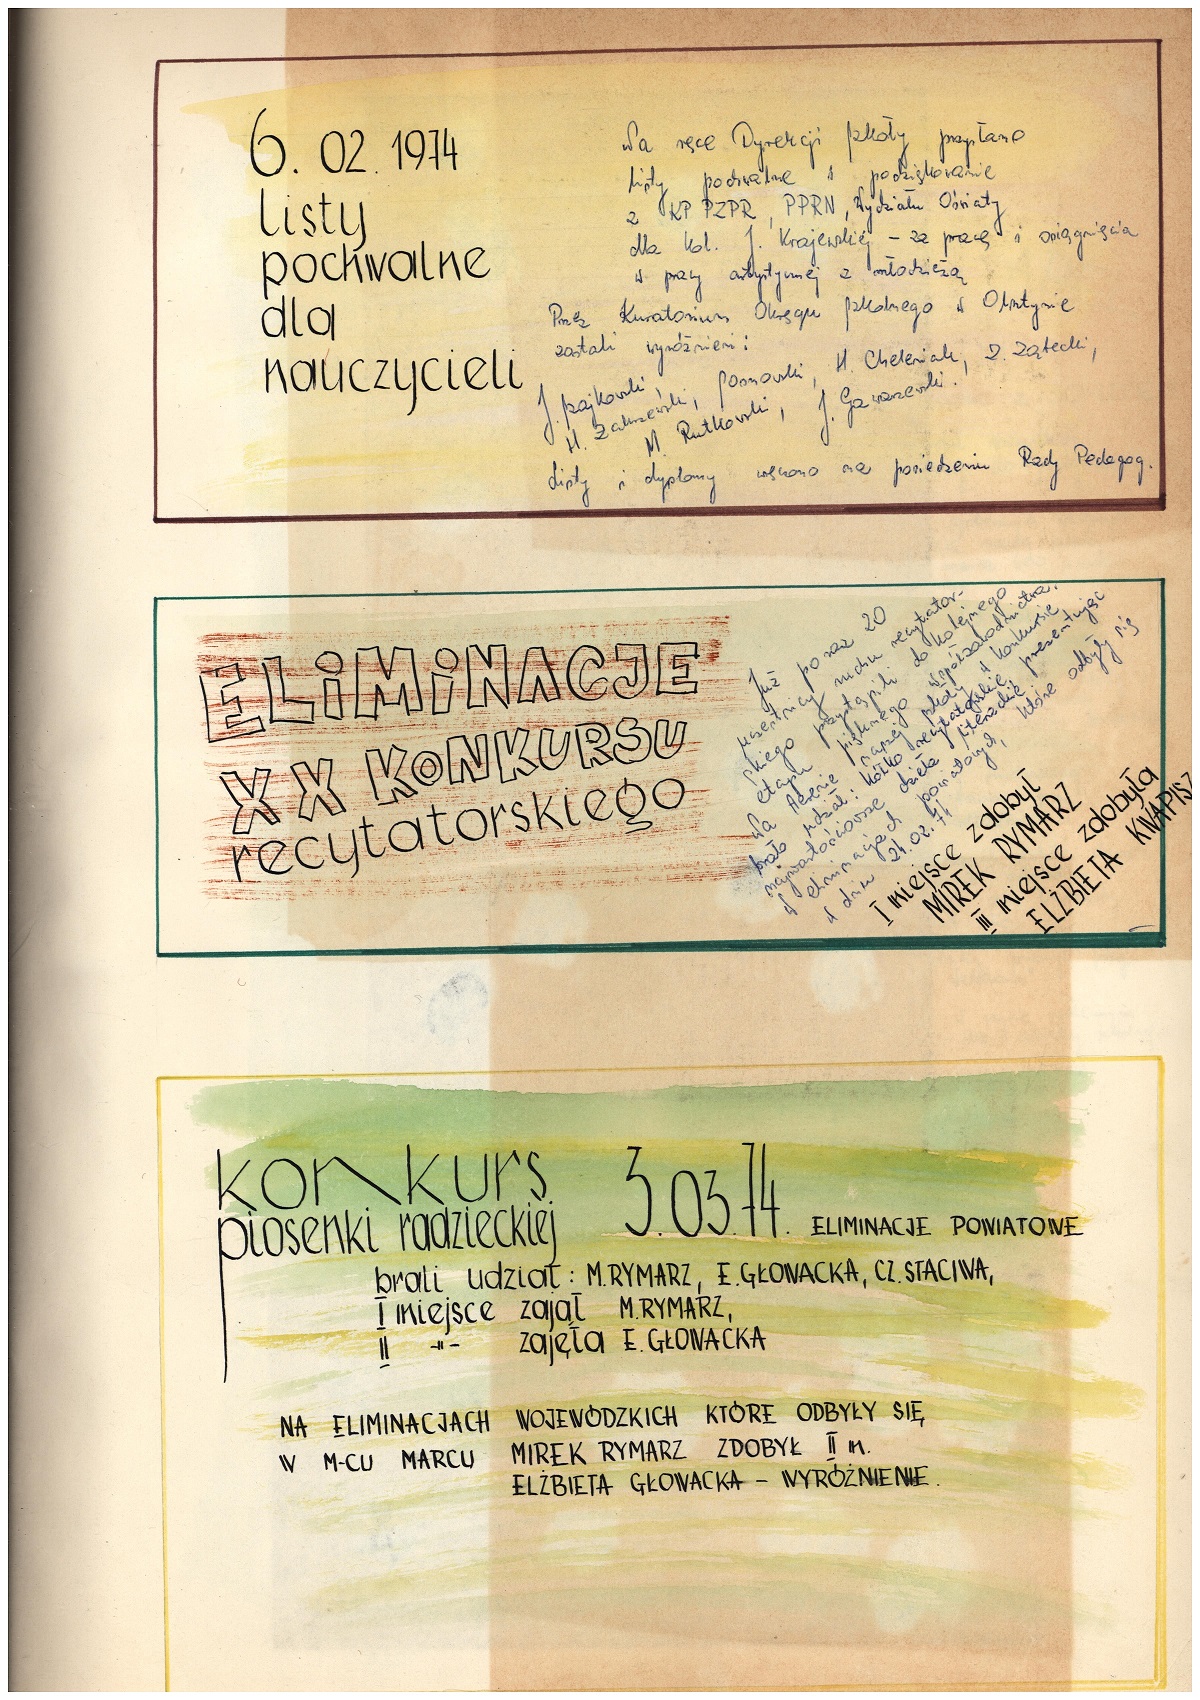 6. 02. 1974
listy
pochwalne
dla
nauczycieli
Na ręce Dyrekcji szkoły przysłano
listy pochwalne i podziękowanie
z KP PZPR, PPRN, Wydziału Oświaty
dla kol. J. Krajewskiej – za pracę i osiągnięcia
w pracy artystycznej z młodzieżą
Przez Kuratorium Okręgu szkolnego w Olsztynie
zostali wyróżnieni:
J. Szajkowski, Sosnowski, H. Cheleniak, Z. Zątecki,
H. Zakrzewski, M. Rutkowski, J. Gawarzewski.
Listy i dyplomy wręczono na posiedzeniu Rady Pedagog.
ELIMINACJE
XX KONKURSU
recytatorskiego
Już po raz 20
uczestnicy ruchu recytator-
skiego przystąpili do kolejnego
etapu pięknego współzawodnictwa.
Na terenie naszej szkoły w konkursie
brało udział: kółko recytatorskie prezentując
najwartościowsze dzieła literackie
w eliminacjach powiatowych, które odbyły się
w dniu 24.02.74
I miejsce zdobył
MIREK RYMARZ
III miejsce zdobyła
ELŻBIETA KWAPISZ
konkurs
piosenki radzieckiej
3.03.74. ELIMINACJE POWIATOWE
brali udział: M.RYMARZ, E.GŁOWACKA, CZ.STACIWA,
I miejsce zajął M.RYMARZ,
II -"- zajęła E.GŁOWACKA
NA ELIMINACJACH WOJEWÓDZKICH KTÓRE ODBYŁY SIĘ
W M-CU MARCU MIREK RYMARZ ZDOBYŁ II m.
ELŻBIETA GŁOWACKA – WYRÓŻNIENIE.